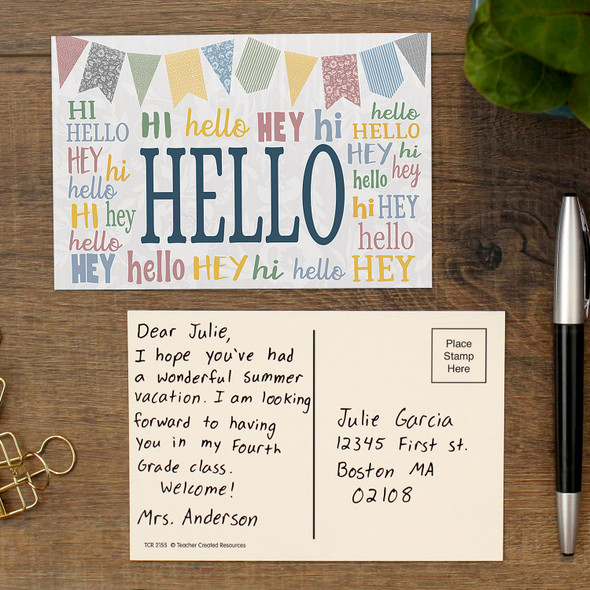 HI
HELLO
HEY hi
hello
HI hey
hello
HEY hello HEY hi hello HEY
HI hello HEY hi
HELLO
hello
HELLO
HEY hi
hello hey
hi HEY
hello
Dear Julie,
I hope you've had
a wonderful summer
vacation. I am looking
forward to having
you in my Fourth
Grade class.
Welcome!
Mrs. Anderson
TCR 2155 © Teacher Created Resources
Place
Stamp
Here
Julie Garcia
12345 First st.
Boston MA
02108